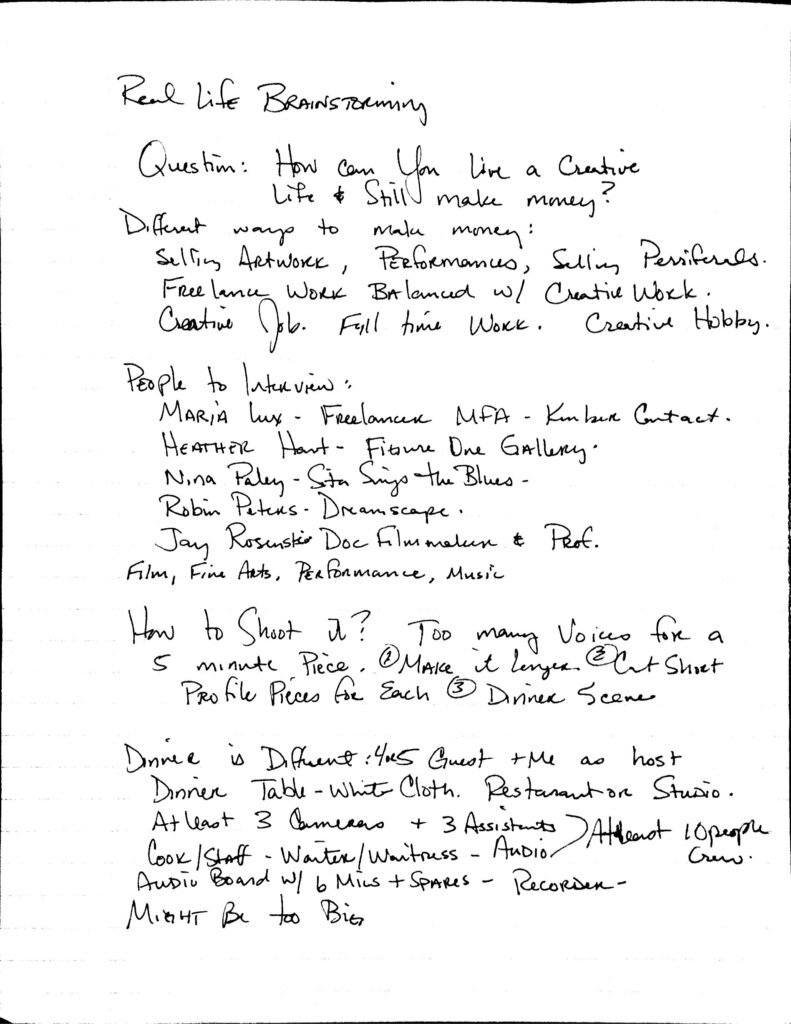 Real Life Brainstorming
Question: How can You live a Creative
Life & Still make money?
Different ways to make money:
Selling Artwork, Performances, Selling Perriferals.
Freelance Work Balanced w/ Creative Work.
Creative Job. Full time Work. Creative Hobby.
People to Interview:
Maria Lux - Freelancer MFA - Kimber Contact.
Heather Hart - Figure One Gallery.
Nina Paley - Sita Sings the Blues -
Robin Peters - Dreamscape.
Jay Doc Filmmaker & Prof.
Film, Fine Arts, Performance, Music
How to Shoot it? Too many Voices for a
5 minute Piece. ① Make it longer. ② Cut Short
Profile Pieces for Each ③ Dinner Scene
Dinner is Different: 4or5 Guest + Me as host
Dinner Table - White Cloth. Restaraunt or Studio.
At least 3 Cameras + 3 Assistants
Cook/Staff - Waiter/Waitress - Audio
At least 10 people
Crew.
Audio Board w/ 6 Mics + Spares - Recorder -
Might Be too Big